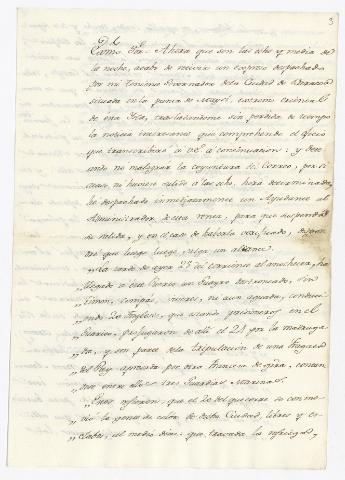 3
Exmo. Sor. Ahora que son las ocho y media de
la noche, acabo de recivir un expreso despachado
por mi Teniente Governador de la Ciudad de Baracoa
situada en la punta de Maysi, extremo oriental
de esta Isla, trasladandome sin perdida de tiempo
la noticia interesante que comprehende el oficio
que transcribiré a V.E. a continuacion: y dese-
ando no malograr la coyuntura del Correo, por si
acaso no huviere salido a las ocho, hora determinada,
he despachado inmediatamente un Ayudante al
Administrador de esta renta, para que suspenda
su salida, y en el caso de haberlo verificado,
que luego luego, salga un alcance.
"La tarde de ayer 23 del corriente al anochecer, ha
"llegado a este Puerto un Guayro destrozado, sin
"timon, compas, viveres, ni aun aguada, conducien-
"do 20 Ingleses, que estando prisioneros en el
"Guarico, profugaron de alli el 21 por la madruga-
"da, y son parte de la tripulacion de una Fragata
"del Rey apresada por otra Francesa
"dose entre ellos tres Guardias Marinas.
"Estos refieren, que el 20 del que corre se conmo-
"vió la gente de color de dicha Ciudad, libres y es-
"clavos, al medio dia: que travada la refriega,